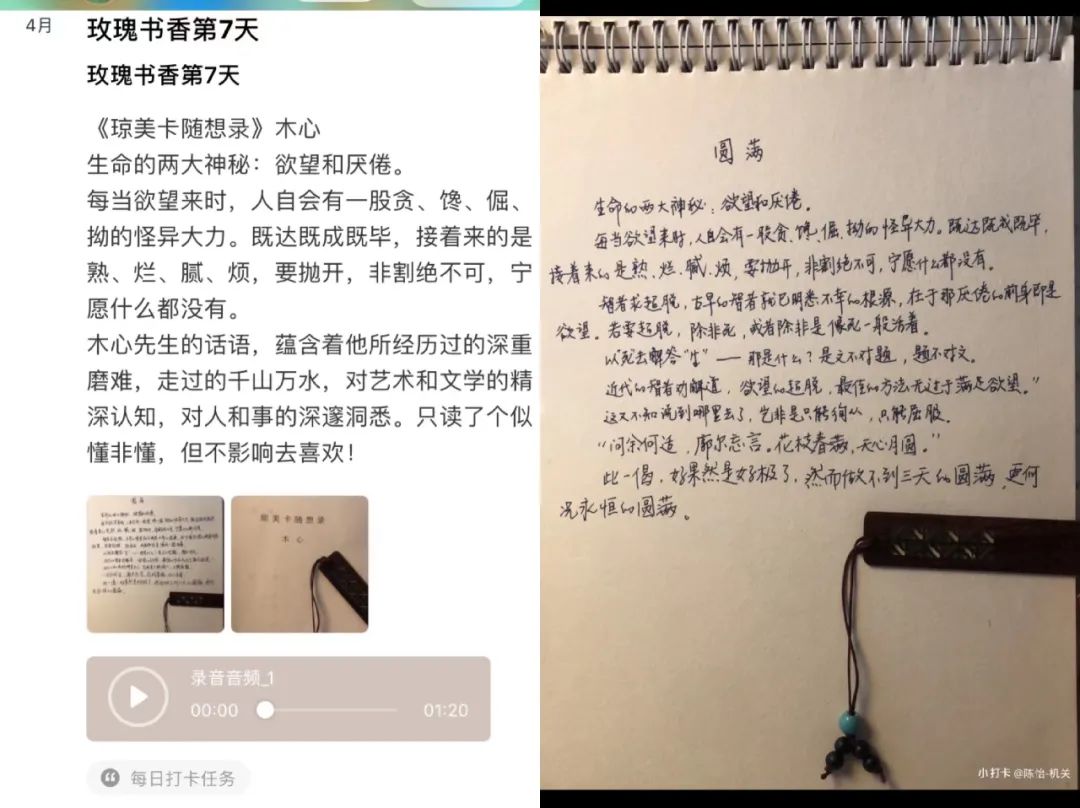 4月
玫瑰书香第7天
玫瑰书香第7天
《琼美卡随想录》木心
生命的两大神秘：欲望和厌倦。
每当欲望来时，人自会有一股贪、馋、倔、
拗的怪异大力。既达既成既毕，接着来的是
熟、烂、腻、烦，要抛开，非割绝不可，宁
愿什么都没有。
木心先生的话语，蕴含着他所经历过的深重
磨难，走过的千山万水，对艺术和文学的精
深认知，对人和事的深邃洞悉。只读了个似
懂非懂，但不影响去喜欢！
琼美卡随想录
木心
录音音频_1
00:00
01:20
每日打卡任务
圆满
生命的两大神秘：欲望和厌倦。
每当欲望来时，人自会有一股贪、馋、倔、拗的怪异大力。既达既成既毕，
接着来的是熟、烂、腻、烦，要抛开，非割绝不可，宁愿什么都没有。
智者求超脱，古早的智者就已明悉不幸的根源，在于那厌倦的前身即是
欲望。若要超脱，除非死，或者除非是像死一般活着。
以“死”去解答“生”——那是什么？是文不对题，题不对文。
近代的智者劝解道，欲望的超脱，最佳的方法无过于满足欲望。”
这又不知说到哪里去了，岂非是只能徇从，只能屈服。
“问余何适，廓尔忘言。花枝春满，天心月圆。”
此一偈，好果然是好极了，然而做不到三天的圆满，更何
况永恒的圆满。
小打卡 @陈怡-机关